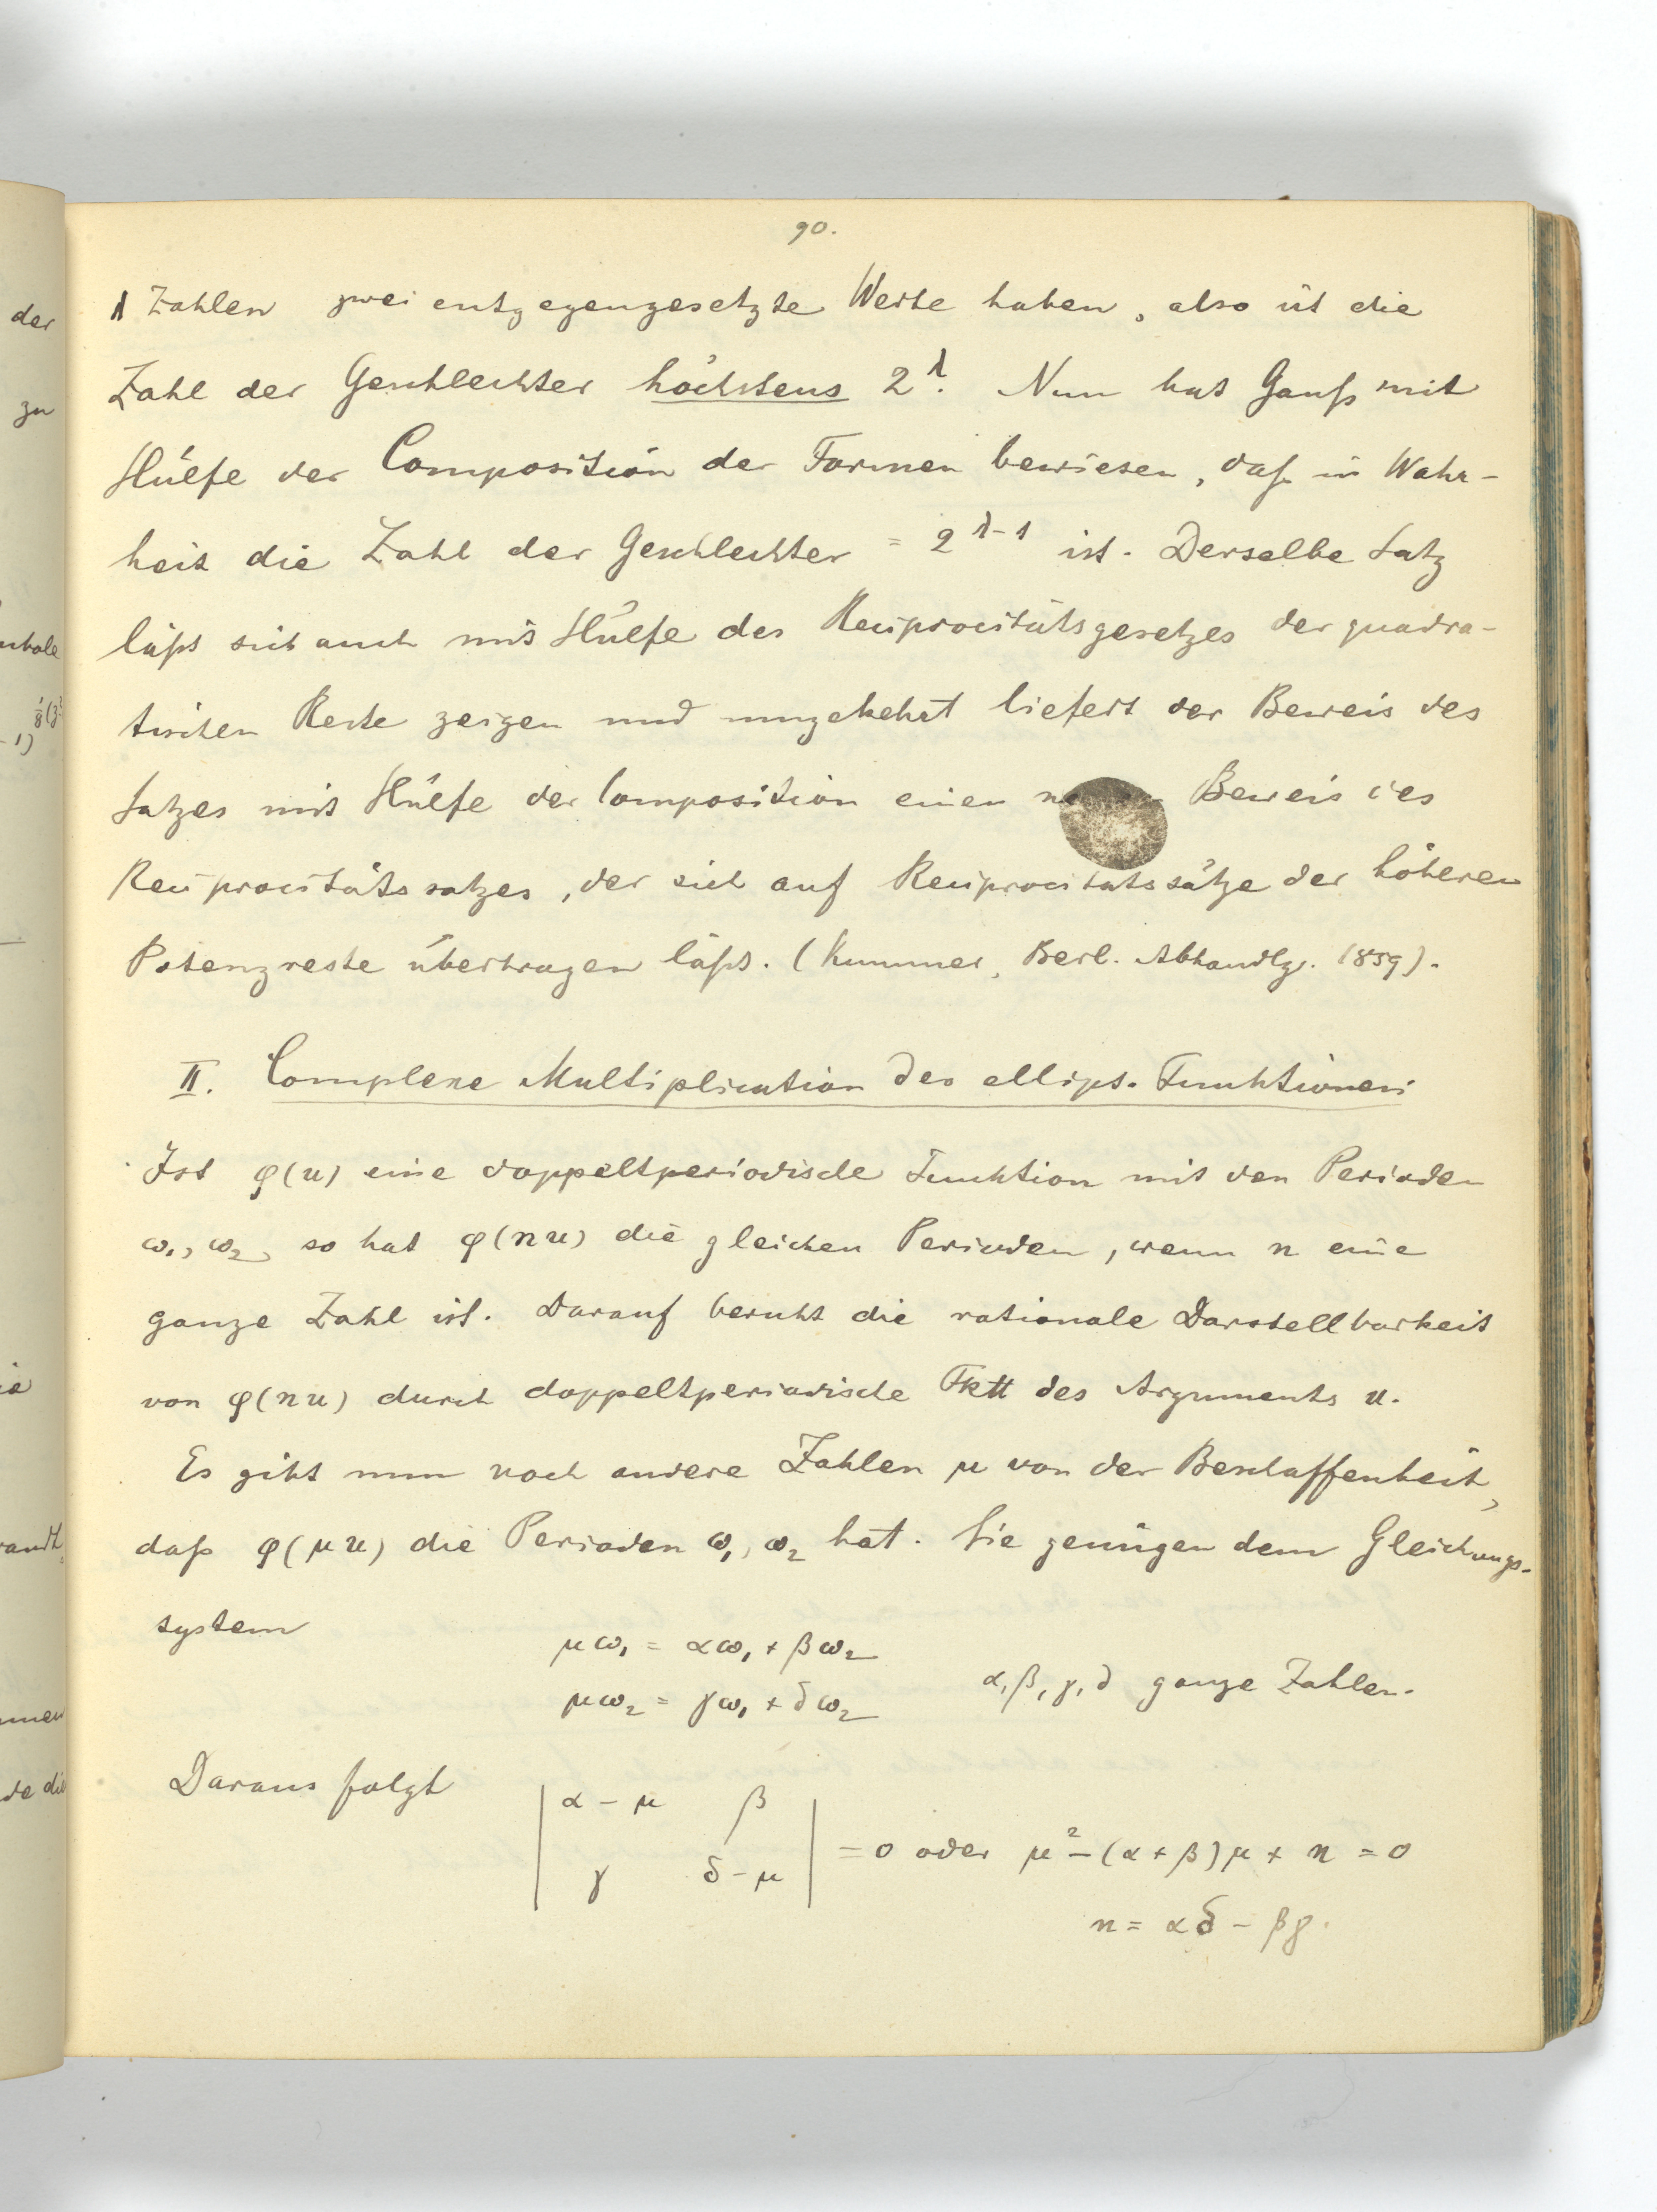 90.
λ Zahlen zwei entgegengesetzte Werte haben, also ist die
Zahl der Geschlechter höchstens 2^λ. Nun hat Gauß mit
Hülfe der Composition der Formen bewiesen, daß in Wahr-
heit die Zahl der Geschlechter = 2^{λ-1} ist. Derselbe Satz
läßt sich auch mit Hülfe des Reciprocitätsgesetzes der quadra-
tischen Reste zeigen und umgekehrt liefert der Beweis des
Satzes mit Hülfe der Composition einen Beweis des
Reciprocitätssatzes, der sich auf Reciprocitätssätze der höheren
Potenzreste übertragen läßt. (Kummer, Berl. Abhandlg. 1859).
II. Complexe Multiplication der ellipt. Funktionen.
Ist φ(u) eine doppeltperiodische Funktion mit den Perioden
ω₁, ω₂, so hat φ(nu) die gleichen Perioden, wenn n eine
ganze Zahl ist. Darauf beruht die rationale Darstellbarkeit
von φ(nu) durch doppeltperiodische Fktt des Arguments u.
Es gibt nun noch andere Zahlen μ von der Beschaffenheit,
daß φ(μu) die Perioden ω₁, ω₂ hat. Sie genügen dem Gleichungs-
system
μω₁ = αω₁ + βω₂
μω₂ = γω₁ + δω₂
α, β, γ, δ ganze Zahlen.
Daraus folgt
| α-μ β |
| γ δ-μ | = 0 oder μ² - (α+β)μ + n = 0
n = αδ - βγ.
der
zu